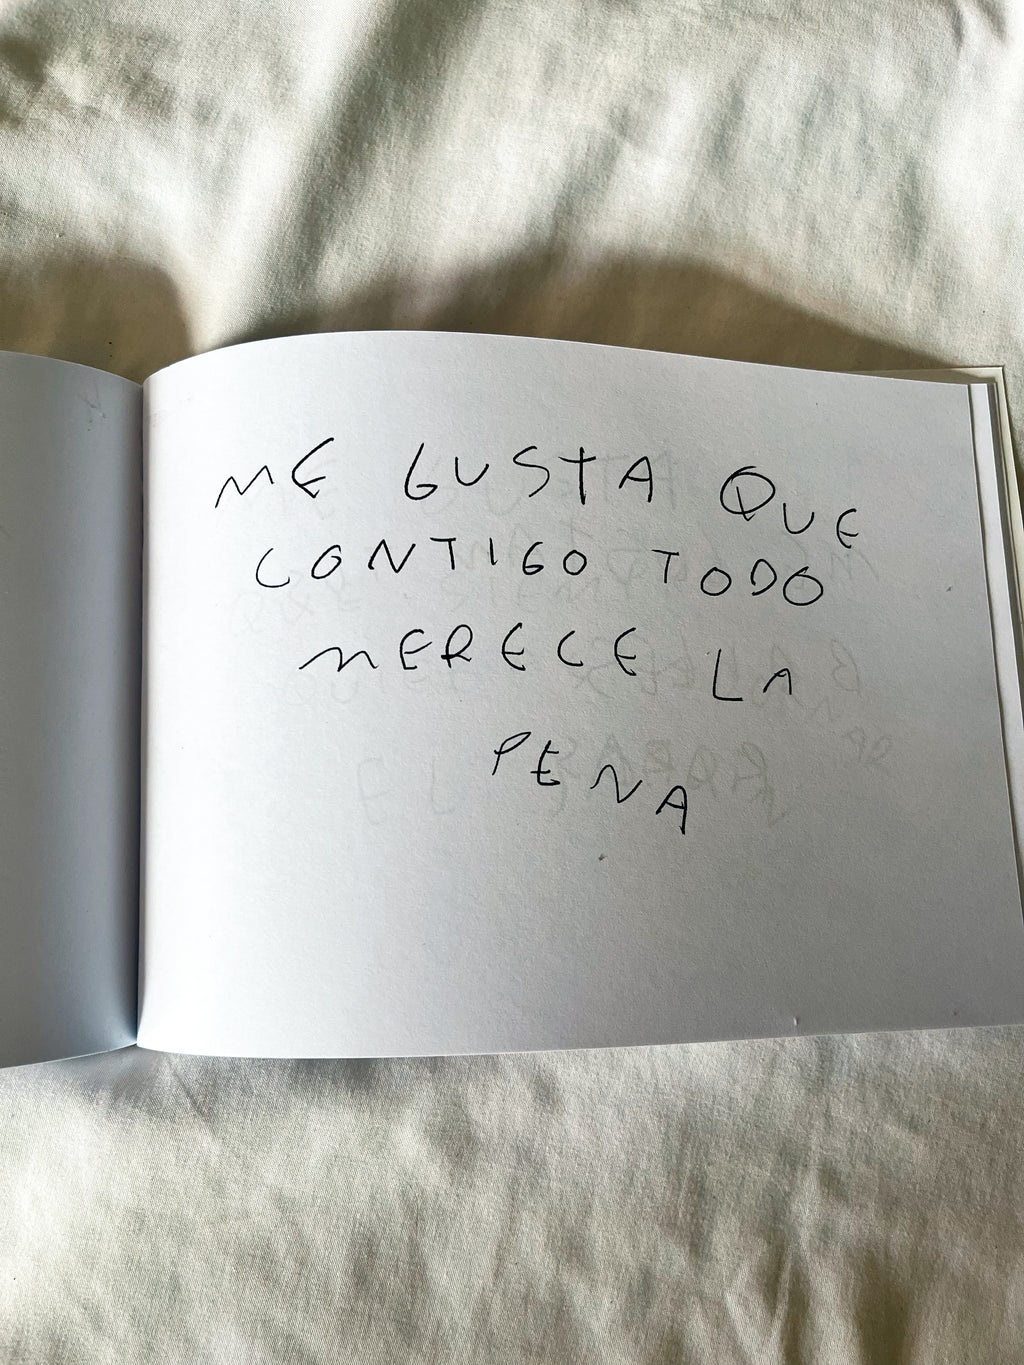 ME GUSTA QUE
CONTIGO TODO
MERECE LA
PENA